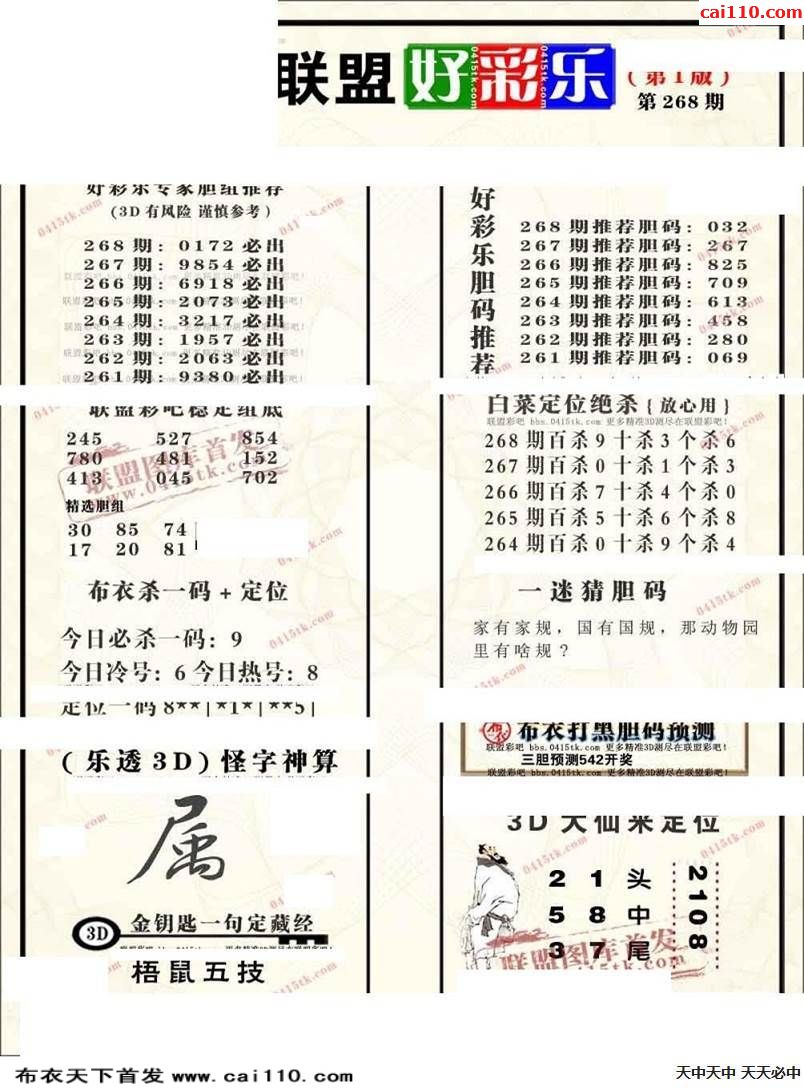 cai110.com
联盟好彩乐
(第1版)
第268期
好彩乐专家胆组推荐
(3D有风险 谨慎参考)
268期:0172必出
267期:9854必出
266期:6918必出
265期:2073必出
264期:3217必出
263期:1957必出
262期:2063必出
261期:9380必出
联盟彩吧稳定组底
245 527 854
780 481 152
413 045 702
精选胆组
30 85 74
17 20 81
布衣杀一码+定位
今日必杀一码:9
今日冷号:6今日热号:8
定位一码8**|*1*|**5|
(乐透3D)怪字神算
属
3D 金钥匙一句定藏经
梧鼠五技
好彩乐胆码推荐
268期推荐胆码:032
267期推荐胆码:267
266期推荐胆码:825
265期推荐胆码:709
264期推荐胆码:613
263期推荐胆码:458
262期推荐胆码:280
261期推荐胆码:069
白菜定位绝杀{放心用}
联盟彩吧 bbs.0415tk.com 更多精准3D测尽在联盟彩吧!
268期百杀9十杀3个杀6
267期百杀0十杀1个杀3
266期百杀7十杀4个杀0
265期百杀5十杀6个杀8
264期百杀0十杀9个杀4
一迷猜胆码
家有家规,国有国规,那动物园
里有啥规?
布衣打黑胆码预测
联盟彩吧 bbs.0415tk.com 更多精准3D测尽在联盟彩吧!
三胆预测542开奖
联盟彩吧 bbs.0415tk.com 更多精准3D测尽在联盟彩吧!
3D大仙来定位
21头
58中
37尾
2108
联盟图库首发
www.0415tk.com
布衣天下首发www.cai110.com
天中天中 天天必中